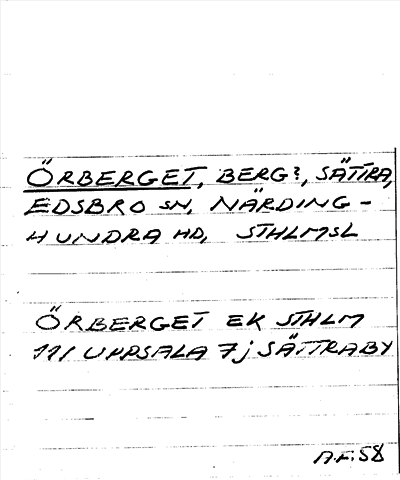 ÖRBERGET, BERG?, SÄTTRA,
EDSBRO SN, NÄRDING-
HUNDRA HD, STHLMSL
ÖRBERGET EK STHLM
111 UPPSALA 7j SÄTTRABY
A.F. 58